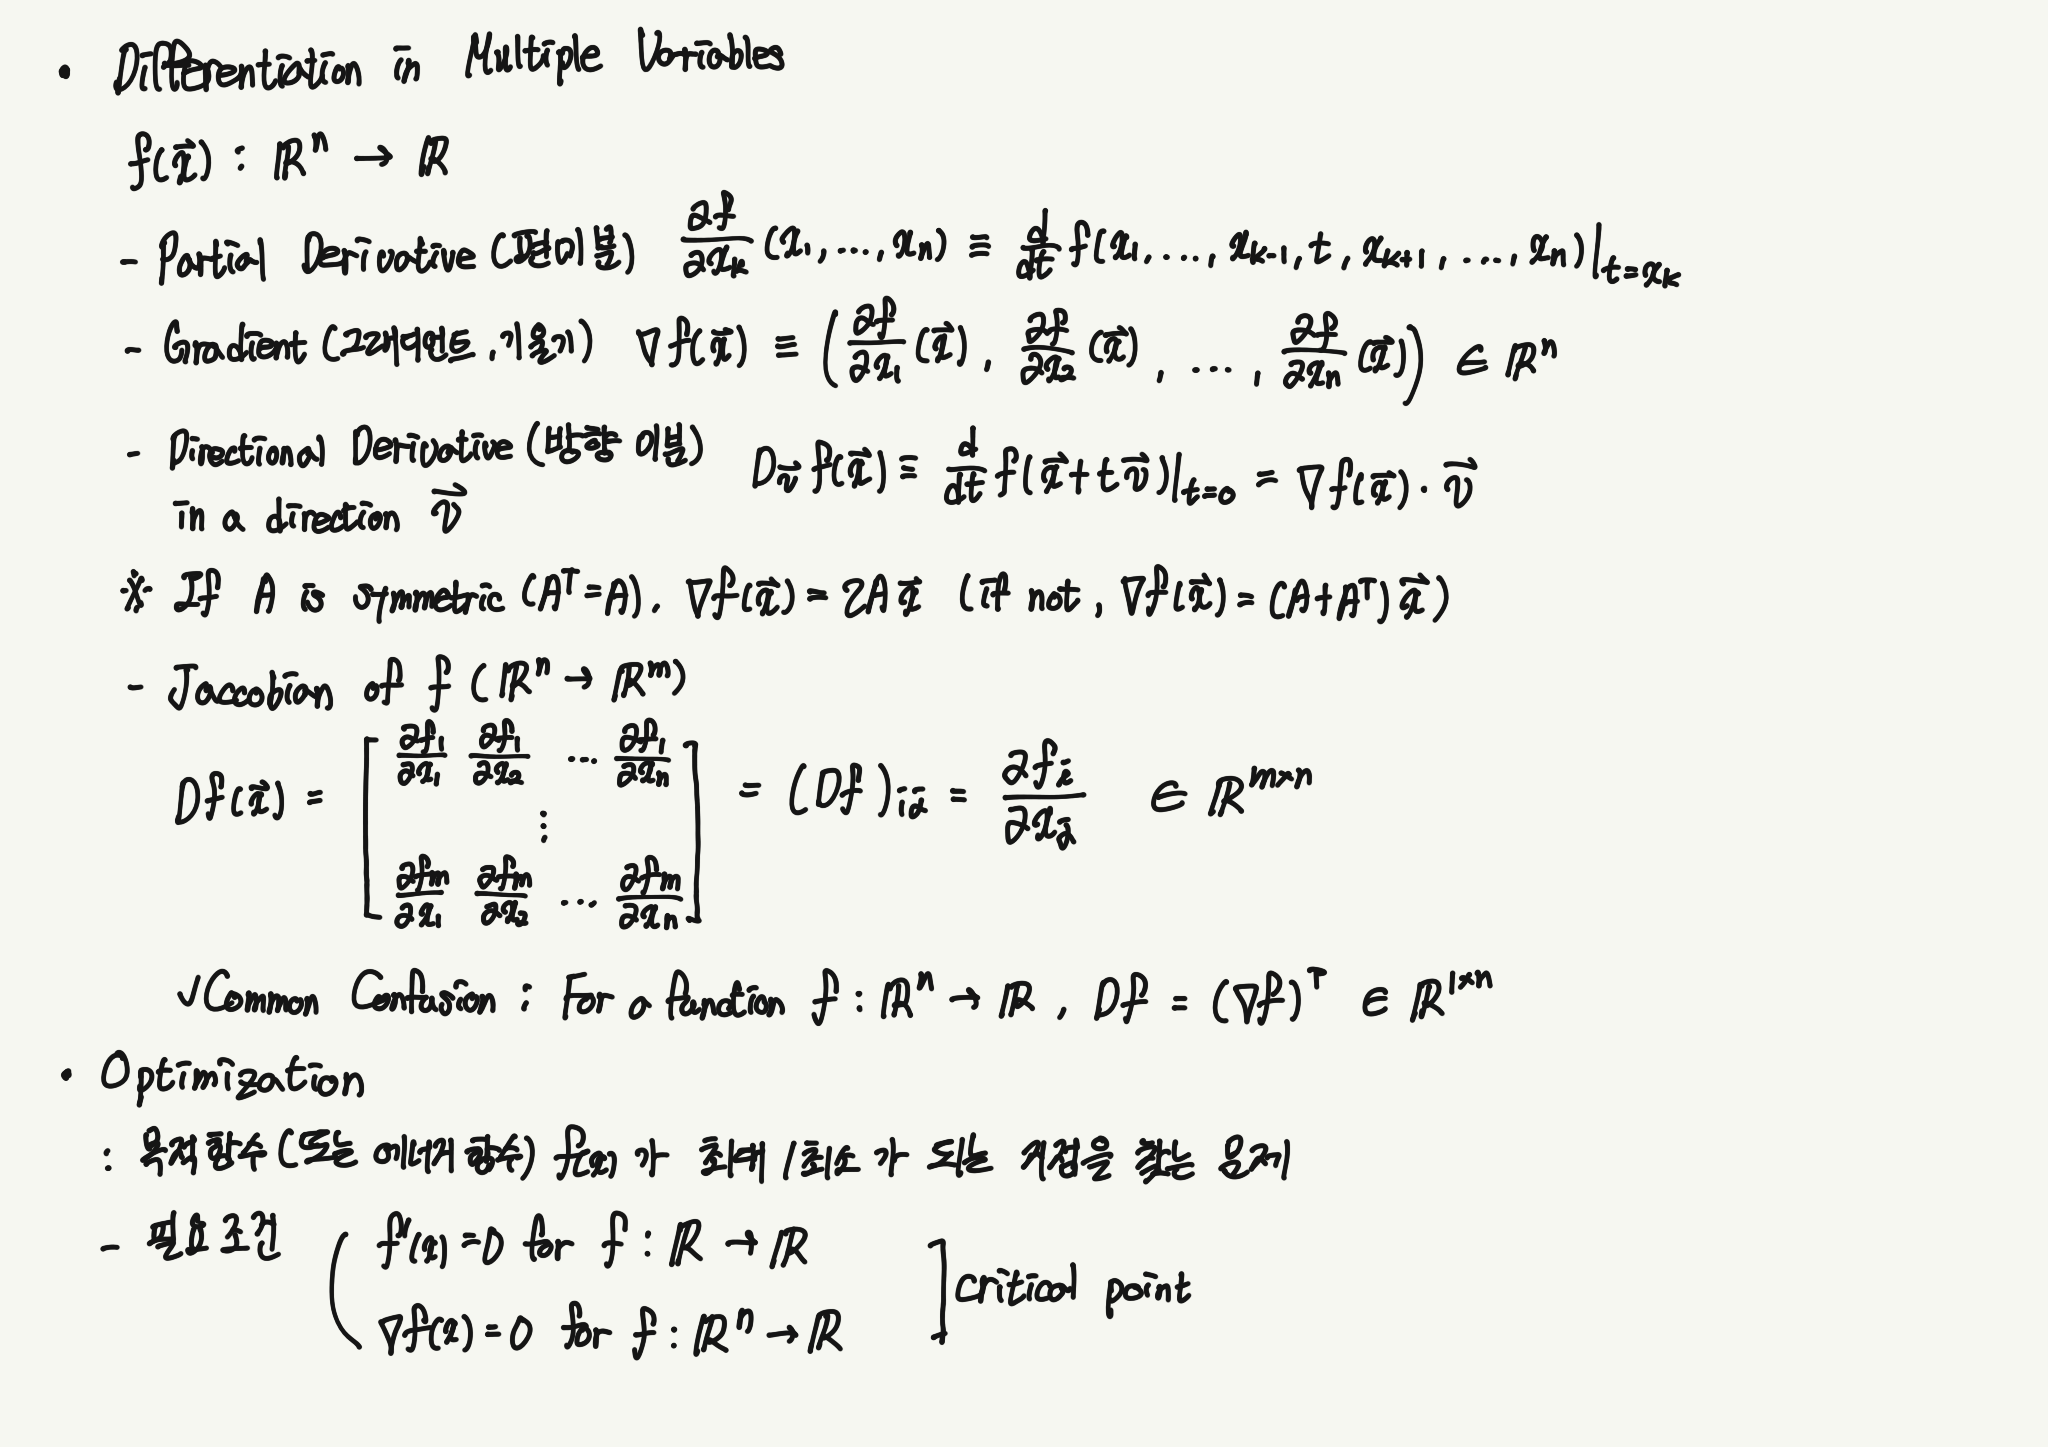 • Differentiation in Multiple Variables
f(x⃗) : ℝⁿ → ℝ
- Partial Derivative (편미분) ∂f/∂xₖ (x₁, ..., xₙ) ≡ d/dt f(x₁, ..., xₖ₋₁, t, xₖ₊₁, ..., xₙ)|ₜ₌ₓₖ
- Gradient (그래디언트, 기울기) ∇f(x⃗) ≡ (∂f/∂x₁ (x⃗), ∂f/∂x₂ (x⃗), ..., ∂f/∂xₙ (x⃗)) ∈ ℝⁿ
- Directional Derivative (방향 미분) D_v⃗ f(x⃗) ≡ d/dt f(x⃗ + t v⃗)|ₜ₌₀ = ∇f(x⃗) · v⃗
in a direction v⃗
※ If A is symmetric (Aᵀ=A), ∇f(x⃗) = 2A x⃗ (if not, ∇f(x⃗) = (A+Aᵀ) x⃗)
- Jaccobian of f (ℝⁿ → ℝᵐ)
Df(x⃗) = [ ∂f₁/∂x₁ ∂f₁/∂x₂ ... ∂f₁/∂xₙ
⋮
∂fm/∂x₁ ∂fm/∂x₂ ... ∂fm/∂xₙ ] = (Df)ᵢⱼ = ∂fᵢ/∂xⱼ ∈ ℝᵐˣⁿ
✓Common Confusion : For a function f : ℝⁿ → ℝ, Df = (∇f)ᵀ ∈ ℝ¹ˣⁿ
• Optimization
: 목적 함수 (또는 에너지 함수) f(x)가 최대/최소가 되는 지점을 찾는 문제
- 필요조건 ( f'(x) = 0 for f : ℝ → ℝ
∇f(x) = 0 for f : ℝⁿ → ℝ ] critical point